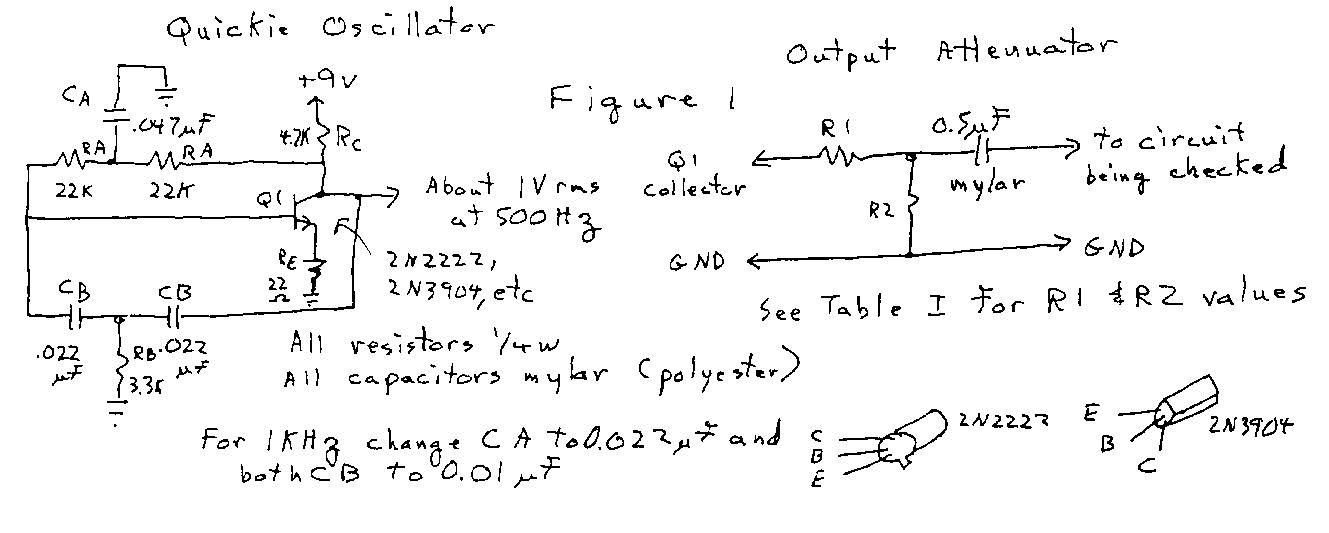 Quickie Oscillator
Output Attenuator
Figure 1
+9V
CA
.047µF
4.7K
RC
RA
RA
22K
22K
Q1
About 1V rms
at 500Hz
RE
22
Ω
2N2222,
2N3904, etc
CB
CB
.022
µF
RB
3.3K
.022
µF
All resistors 1/4W
All capacitors mylar (polyester)
For 1KHz change CA to 0.022µF and
both CB to 0.01µF
R1
0.5µF
Q1
collector
mylar
to circuit
being checked
R2
GND
GND
See Table I for R1 & R2 values
C
B
E
2N2222
E
B
C
2N3904